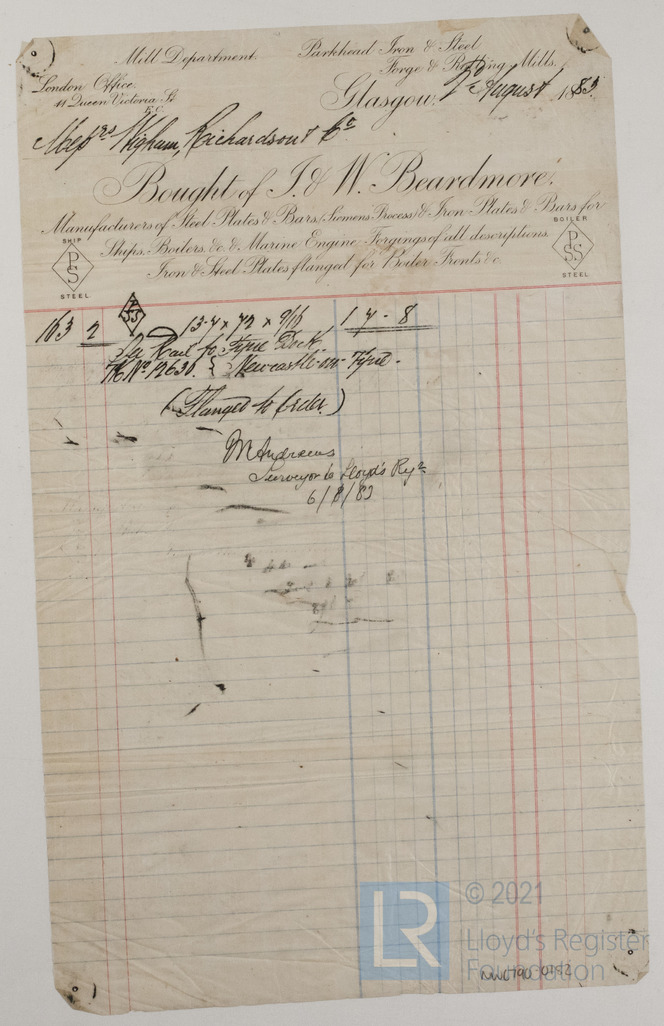 Mill Department.
Parkhead Iron & Steel
Forge & Rolling Mills,
London Office.
11 Queen Victoria St
E.C.
Glasgow, August 1883
Messrs Wigham, Richardson & Co
Bought of J. & W. Beardmore.
Manufacturers of Steel Plates & Bars, (Siemens Process) & Iron Plates & Bars for
Ships, Boilers, &c & Marine Engine Forgings of all descriptions.
Iron & Steel Plates flanged for Boiler Fronts &c.
SHIP
PSS
STEEL
BOILER
PSS
STEEL
163 2 PSS 13-4 x 72 x 9/16 1 7 - 8
Rail to Tyne Dock.
No 12630. { Newcastle-on-Tyne.
(Flanged to Order.)
M Andrews
Surveyor to Lloyd's Rgr
6/8/83
LR
© 2021
Lloyd's Register
Foundation